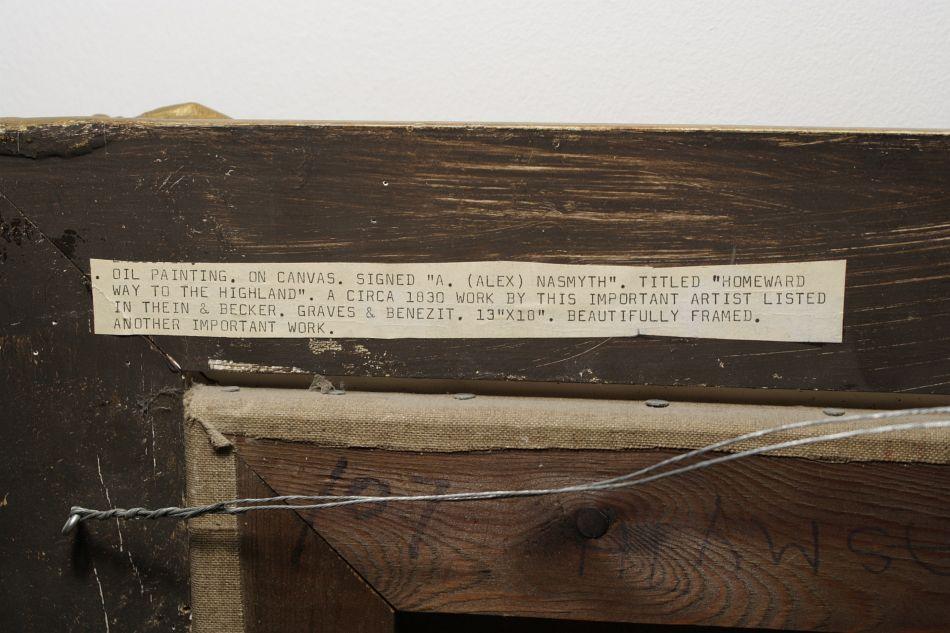 . OIL PAINTING. ON CANVAS. SIGNED "A. (ALEX) NASMYTH". TITLED "HOMEWARD
WAY TO THE HIGHLAND". A CIRCA 1830 WORK BY THIS IMPORTANT ARTIST LISTED
IN THEIN & BECKER. GRAVES & BENEZIT. 13"X18". BEAUTIFULLY FRAMED.
ANOTHER IMPORTANT WORK.
107